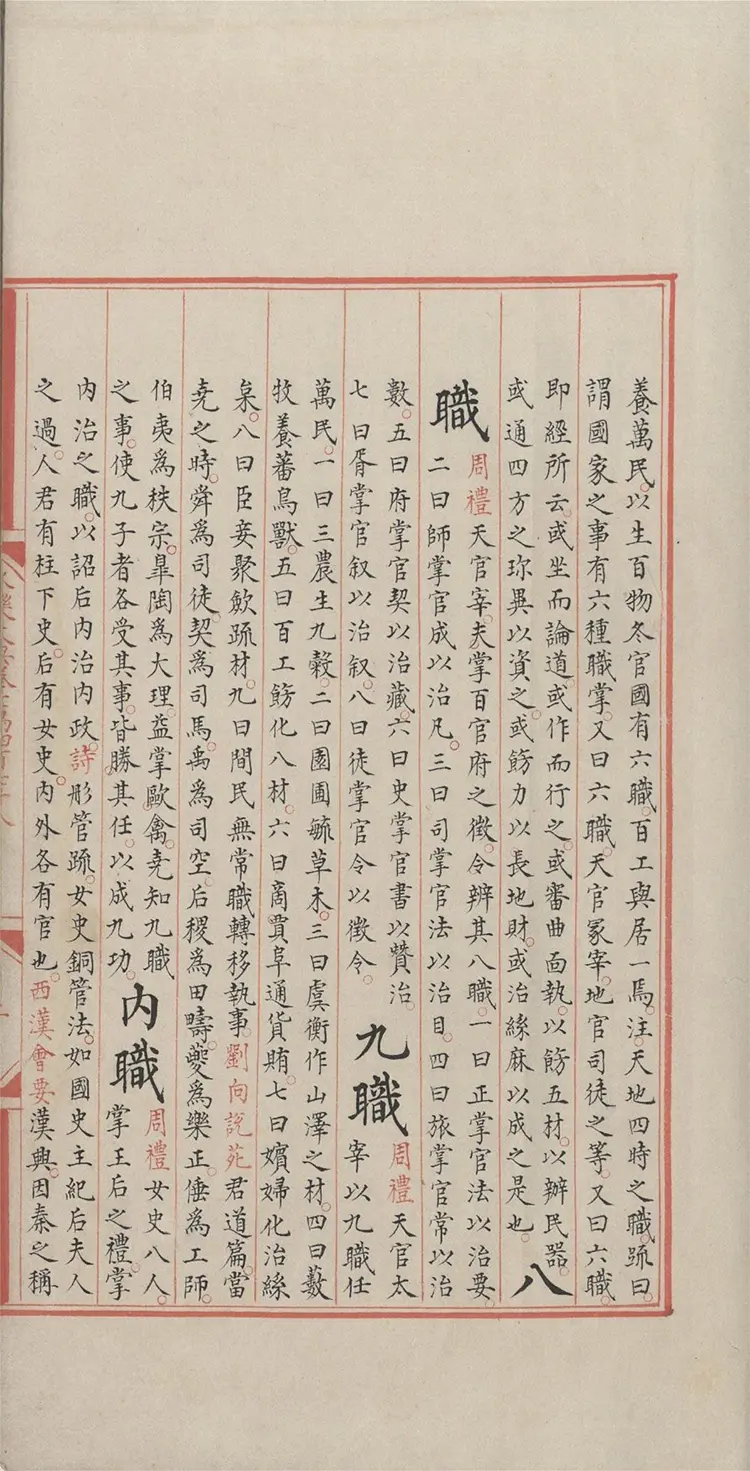 養萬民。以生百物冬官國有六職。百工與居一焉。注。天地四時之職。䟽曰。
謂國家之事有六種職掌。又曰六職。天官冢宰。地官司徒之等。又曰六職。
即經所云。或坐而論道。或作而行之。或審曲面埶。以飭五材。以辦民器。
或通四方之珎異以資之。或飭力以長地財。或治絲麻以成之是也。
八
職
周禮天官宰夫。掌百官府之徵令。辨其八職。一曰正掌官法以治要。
二曰師掌官成以治凡。三曰司掌官法以治目。四曰旅掌官常以治
數。五曰府掌官契以治藏。六曰史掌官書以贊治。
七曰胥掌官叙以治叙。八曰徒掌官令以徵令。
九職
周禮天官太
宰以九職任
萬民。一曰三農生九榖。二曰園圃毓草木。三曰虞衡作山澤之材。四曰藪
牧養蕃鳥獸。五曰百工飭化八材。六曰商賈阜通貨賄。七曰嬪婦化治絲
枲。八曰臣妾聚歛䟽材。九曰間民無常職轉移執事。劉向說苑君道篇。當
尭之時。舜爲司徒。契爲司馬。禹爲司空。后稷爲田疇。夔爲樂正。倕爲工師。
伯夷爲秩宗。臯陶爲大理。益掌歐禽。尭知九職
之事。使九子者各受其事。皆勝其任。以成九功。
内職
周禮女史八人。
掌王后之禮。掌
内治之職。以詔后内治内政。詩彤管䟽。女史銅管法。如國史主紀后夫人
之過。人君有柱下史。后有女史。内外各有官也。西漢會要漢典。因秦之稱